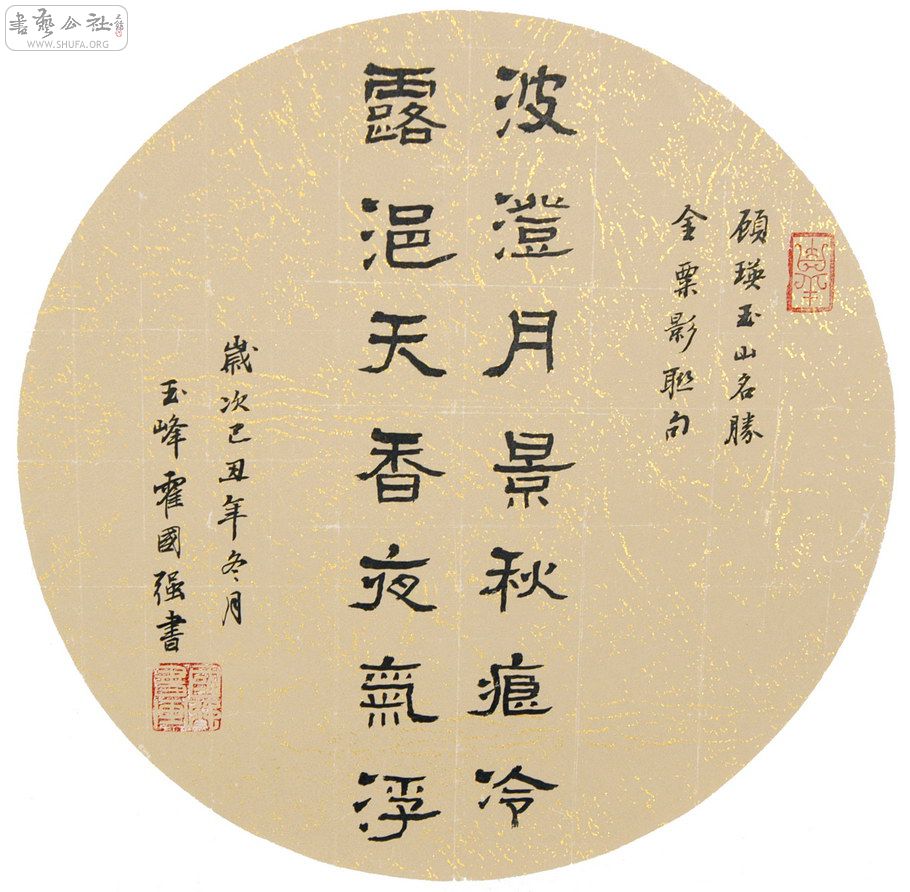 書藝公社
WWW.SHUFA.ORG
顾瑛玉山名勝
金粟影聯句
波澄月景秋痕冷
露浥天香夜氣浮
歲次己丑年冬月
玉峰霍國强書